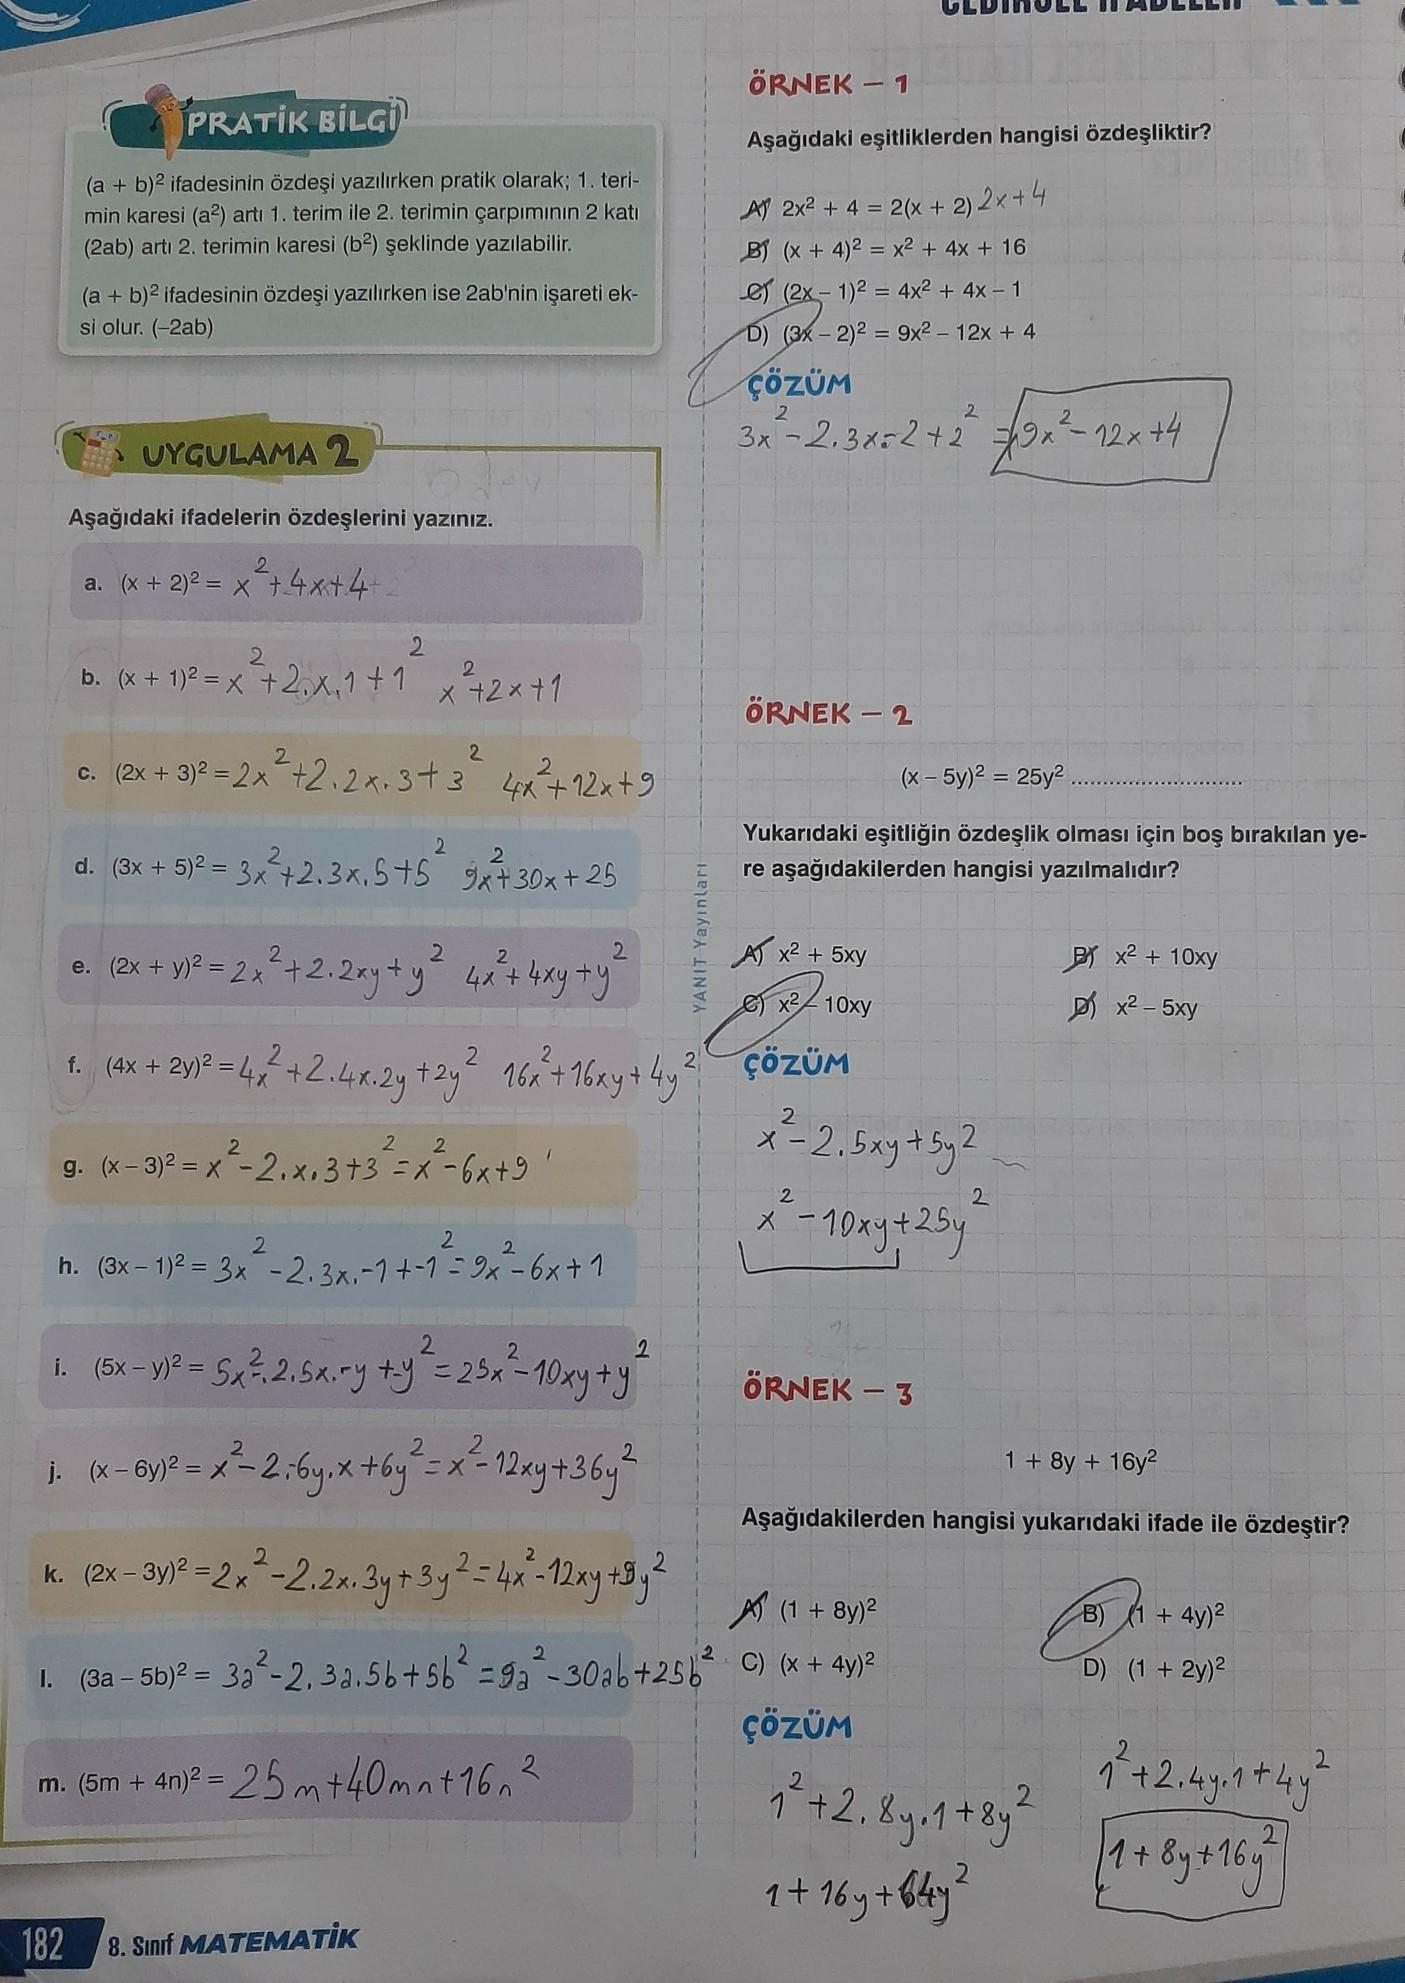 PRATİK BİLGİ
(a + b)² ifadesinin özdeşi yazılırken pratik olarak; 1. teri-
min karesi (a²) artı 1. terim ile 2. terimin çarpımının 2 katı
(2ab) artı 2. terimin karesi (b²) şeklinde yazılabilir.
(a + b)² ifadesinin özdeşi yazılırken ise 2ab'nin işareti ek-
si olur. (–2ab)
UYGULAMA 2
Aşağıdaki ifadelerin özdeşlerini yazınız.
a. (x + 2)² = x²+4x+4
b. (x + 1)² = x²+2.x.1+1² x²+2x+1
c. (2x + 3)² = 2x²+2.2x.3+3² 4x²+12x+9
d. (3x + 5)² = 3x²+2.3x.5+5² 9x²+30x+25
e. (2x + y)² = 2x²+2.2xy+y² 4x²+4xy+y²
f. (4x + 2y)² = 4x²+2.4x.2y+2y² 16x²+16xy+4y²
g. (x – 3)² = x²-2.x.3+3²=x²-6x+9
h. (3x – 1)² = 3x²-2.3x.-1+-1²=9x²-6x+1
i. (5x – y)² = 5x²-.2.5x.-y+-y²=25x²-10xy+y²
j. (x – 6y)² = x²-2.-6y.x+6y²=x²-12xy+36y²
k. (2x – 3y)² = 2x²-2.2x.3y+3y²=4x²-12xy+9y²
l. (3a – 5b)² = 3a²-2.3a.5b+5b²=9a²-30ab+25b²
m. (5m + 4n)² = 25m+40mn+16n²
182 8. Sınıf MATEMATİK
YANIT Yayınları
ÖRNEK – 1
Aşağıdaki eşitliklerden hangisi özdeşliktir?
A) 2x² + 4 = 2(x + 2) 2x+4
B) (x + 4)² = x² + 4x + 16
C) (2x – 1)² = 4x² + 4x – 1
D) (3x – 2)² = 9x² – 12x + 4
ÇÖZÜM
3x²-2.3x.-2+2² = 9x²-12x+4
ÖRNEK – 2
(x – 5y)² = 25y² ..........................
Yukarıdaki eşitliğin özdeşlik olması için boş bırakılan ye-
re aşağıdakilerden hangisi yazılmalıdır?
A) x² + 5xy B) x² + 10xy
C) x² – 10xy D) x² – 5xy
ÇÖZÜM
x²-2.5xy+5y²
x²-10xy+25y²
ÖRNEK – 3
1 + 8y + 16y²
Aşağıdakilerden hangisi yukarıdaki ifade ile özdeştir?
A) (1 + 8y)² B) (1 + 4y)²
C) (x + 4y)² D) (1 + 2y)²
ÇÖZÜM
1²+2.8y.1+8y² 1²+2.4y.1+4y²
1+16y+64y² 1+8y+16y²